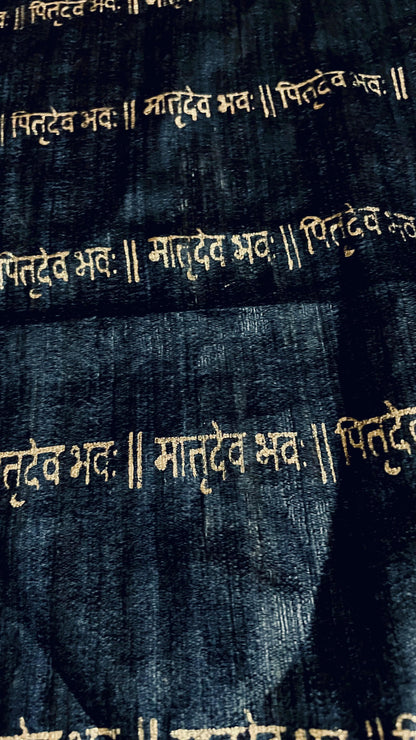 || पितृदेव भवः || मातृ
| पितृदेव भवः || मातृदेव भवः || पितृदेव भवः ||
पितृदेव भवः || मातृदेव भवः || पितृदेव भवः
तृदेव भवः || मातृदेव भवः || पितृदेव